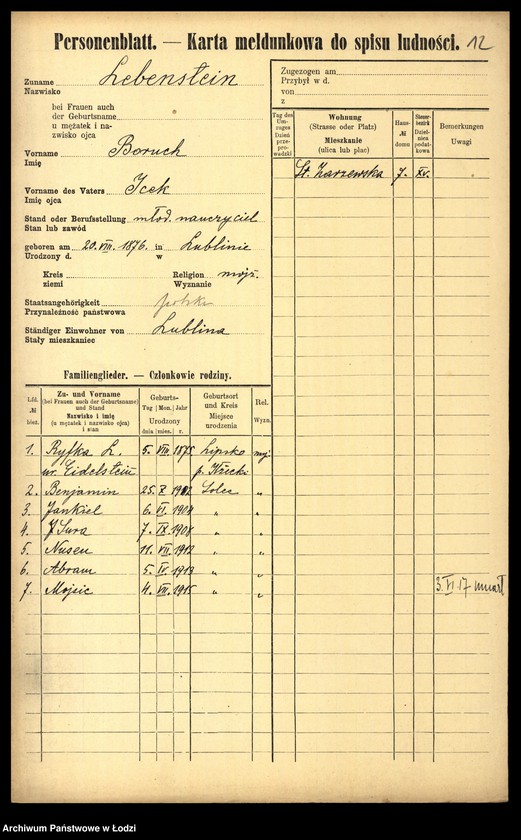 Personenblatt. — Karta meldunkowa do spisu ludności. 12
Zuname Lebenstein
Nazwisko
bei Frauen auch
der Geburtsname
u mężatek i na-
zwisko ojca
Vorname Boruch
Imię
Vorname des Vaters Icek
Imię ojca
Stand oder Berufsstellung młod. nauczyciel
Stan lub zawód
geboren am 20.VIII.1876. in Lublinie
Urodzony d. w
Kreis Religion mojż.
ziemi Wyznanie
Staatsangehörigkeit polska
Przynależność państwowa
Ständiger Einwohner von Lublina
Stały mieszkaniec
Zugezogen am
Przybył w d.
von
z
Tag des Um-zuges Dzień prze-pro-wadzki
Wohnung (Strasse oder Platz) Mieszkanie (ulica lub plac)
Haus- № domu
Steuer-bezirk Dziel-nica podat-kowa
Bemerkungen Uwagi
St. Zarzewska 7. XV.
Familienglieder. — Członkowie rodziny.
Lfd. № bież.
Zu- und Vorname (bei Frauen auch der Geburtsname) und Stand Nazwisko i imię (u mężatek i nazwisko ojca) i stan
Geburts- Tag Mon. Jahr Urodzony dnia mies. r.
Geburtsort und Kreis Miejsce urodzenia
Rel. Wyzn.
1. Ryfka L. 5. VIII. 1875 Lipsko moj.
ur. Eidelstein p.
2. Benjamin 25. X 1902 Solec „
3. Jankiel 6. VI. 1904 „ „
4. Sura 7. IX 1908 „ „
5. Nusen 11. VII. 1912 „ „
6. Abram 5. IV. 1913 „ „
7. Mojsie 4. VII. 1915 „ „ 3.VI.17 umarł
Archiwum Państwowe w Łodzi